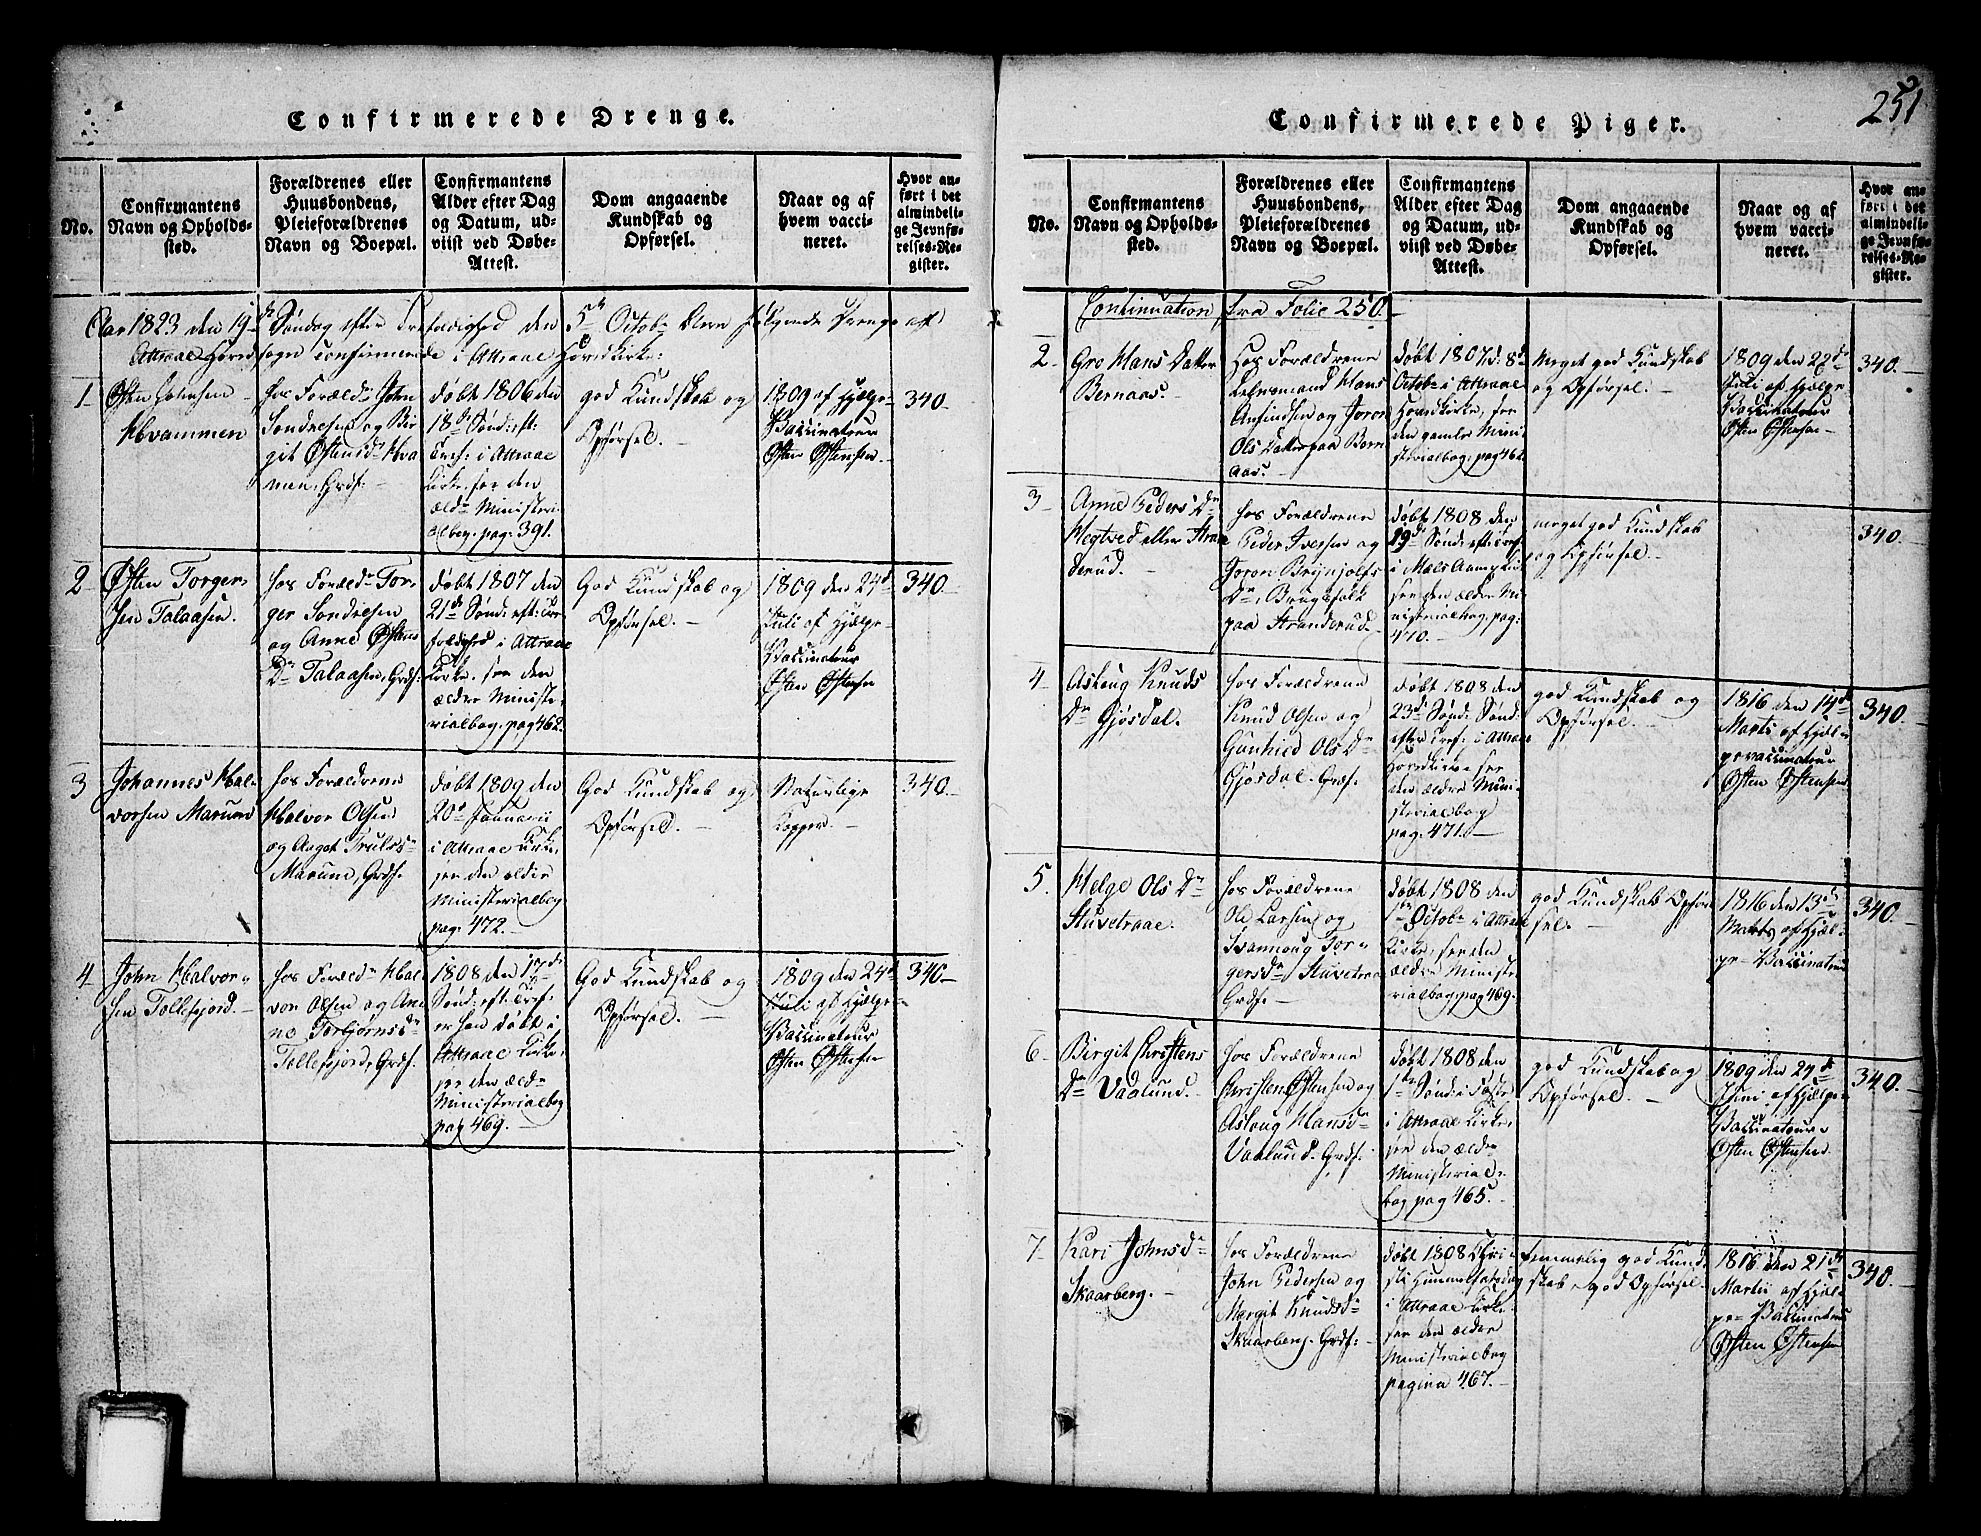 Confirmerede Drenge.
No.
Confirmantens
Navn og Opholds-
sted.
Forældrenes eller
Huusbondens,
Pleieforældrenes
Navn og Boepæl.
Confirmantens
Alder efter Dag
og Datum, ud-
viist ved Døbe-
Attest.
Dom angaaende
Kundskab og
Opførsel.
Naar og af
hvem vacci-
neret.
Hvor an-
ført i det
almindeli-
ge Jevnfø-
relses-Re-
gister.
Aar 1823 den 19de Søndag efter Trefoldighed den 5te Octobr bleve følgende Drenge af
Attraae Hovedsogn confirmerede i Attraae Hovedkirke:
1
Østen Johnsen
Hvammen
hos Foræld: John
Sondresen og Bir
git Østensdr Hva
men, Grdf:
døbt 1806 den
18de Sønd: eft:
Tref: i Attraae
Kirke, see den
ældr Ministeri
albog. pag: 391.
god Kundskab og
Opførsel. -
1809 af Hjælpe-
Vaccinateur
Østen Østensen
340
2
Østen Torger
sen Talaasen.
hos Foræld: Tor
ger Sondresen
og Anne Østens
Dr Talaasen, Grdf:
døbt 1807 den
21de Sønd: eft: Tre
foldighed i Attraae
Kirke, see den
ældre Ministe-
rialbog, pag 462.
God Kundskab og
Opførsel. -
1809 den 24de
Juli af Hjælpe-
Vaccinateur
Østen Østensen
340
3
Johannes Hal-
vorsen Marum
hos Forældrene
Halvor Olsen
og Aaget Truls
Marum, Grdf.
døbt 1809 den
20de Januarii
i Attraae Kirke,
see den ældre
Ministerialbog
pag: 472. -
God Kundskab og
Opførsel. -
Naturlige
Kopper. -
340.
4
John Halvor-
sen Tollefsjord. -
hos Foræld: Hal-
vor Olsen og An
ne Torbjørnsdr
Tollefsjord, Grdf.
1808 den 17de
Sønd: eft: Tref:
er han døbt i
Attraae Kirke,
see den ældr
Ministerialbog
pag 469. -
God Kundskab og
Opførsel. -
1809 den 24de
Juli af Hjælpe-
Vaccinateur
Østen Østensen
340
251
Confirmerede Piger.
No.
Confirmantens
Navn og Opholds-
sted.
Forældrenes eller
Huusbondens,
Pleieforældrenes
Navn og Boepæl.
Confirmantens
Alder efter Dag
og Datum, ud-
viist ved Døbe-
Attest.
Dom angaaende
Kundskab og
Opførsel.
Naar og af
hvem vacci-
neret.
Hvor an-
ført i det
almindeli-
ge Jevnfø-
relses-Re-
gister.
Continuation fra Folie 250.
2
Gro Hans Datter
Bernaas.
Hos Forældrene
Lehnsmand Hans
Ansindsen og Joron
Ols Datter paa Bern
aas.
døbt 1807 d: 8de
Octobr i Attraae
Hovedkirke, see
den gamle Mini
sterialbog, pag 462.
Meget god Kundskab
og Opførsel. -
1809 den 22de
Juli af Hjælpe
Vaccinateur
Østen Østensen
340.
3
Anne Peders Dr
Hegtved eller Stran
derud.
hos Forældrene
Peder Iversen og
Joron Brynjolfs
Dr, Brugsfolk
paa Stranderud.
døbt 1808 den
19de Sønd: eft: Tref:
i Mæls Annexkirke
see den ældre Mi
nisterialbog, pag:
470. -
meget god Kundskab
og Opførsel. -
340.
4
Aslaug Knuds
Dr Gjøsdal.
hos Forældrene
Knud Olsen og
Gunhild Ols Dr
Gjøsdal. Grdf.
døbt 1808 den
23de Sønd: Sønd:
efter Tref: i Attraae
Hovedkirke see
den ældre Mini-
sterialbog
pag: 471. -
god Kundskab og
Opførsel. -
1816 den 14de
Martii af Hjæl-
pevaccinateur
Østen Østensen
340.
5.
Helge Ols Dr
Stuvetraae.
hos Forældrene
Ole Larsen og
Svannoug Tor-
gersdr, Stuvetraae
Grdf. -
døbt 1808 den
1ste Octobr i Attraae
Kirke, see den
ældre Ministe-
rialbog, pag 469.
god Kundskab Opfør
sel. -
1816 den 13de
Marts af Hjæl-
pe-Vaccinateur
340.
6
Birgit Christens
Dr Vaalund. -
hos Forældrene
Christen Østensen og
Aslaug Hansdr
Vaalund. Grdf.
døbt 1808 den
1ste Sønd: i Faste
i Attraae Kirke,
see den ældre
Ministerial-
bog pag 465. -
god Kundskab og
Opførsel. -
1809 den 24de
Juni af Hjælpe-
Vaccinateur
Østen Østensen
340.
7
Kari Johnsdr
Skaarberg. -
hos Forældrene
John Pedersen og
Margit Knudsdr
Skaarberg. Grdf:
døbt 1808 Chri-
sti Himmelfartsdag
i Attraae Kirke.
see den ældre
Ministerialbog
pagina 467. -
temmelig god Kund
skab - god Opførsel
1816 den 21de
Martii af Hjæl-
pe-Vaccinateur
Østen Østensen
340.